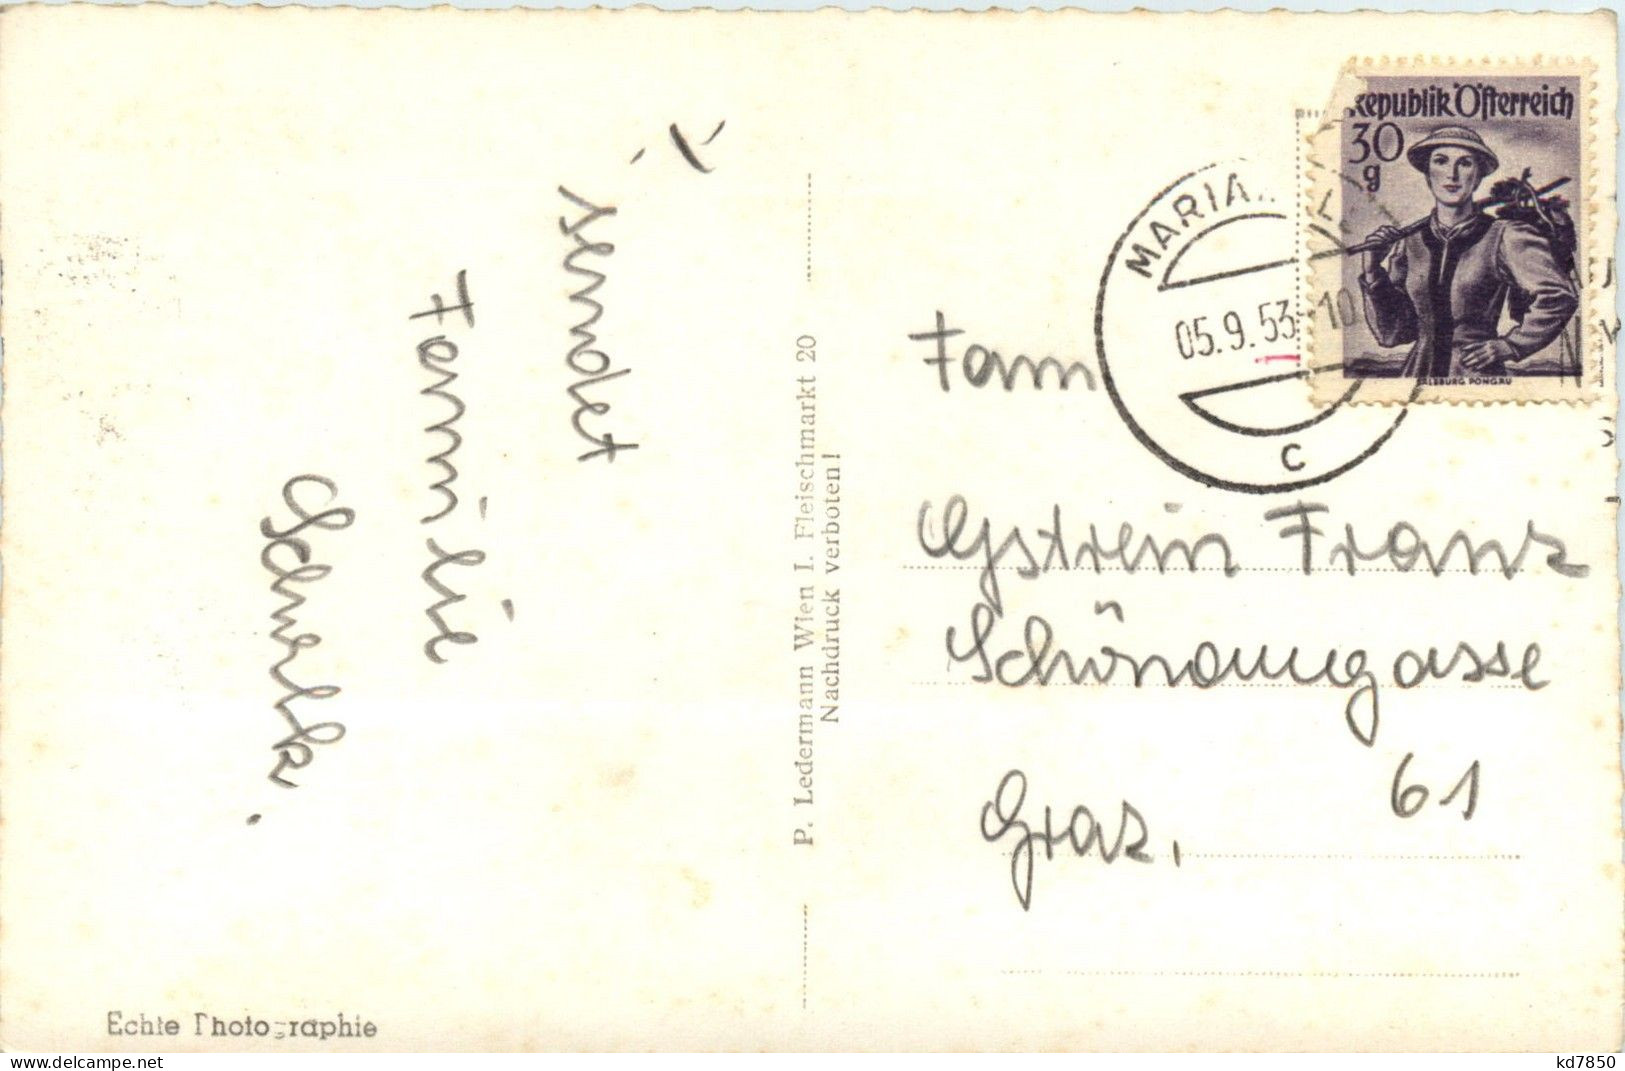 ÷
sendet
Familie
Schnelk.
P. Ledermann Wien I. Fleischmarkt 20
Nachdruck verboten!
Echte Photographie
Republik Österreich
30
g
SALZBURG PONGAU
MARIA
05.9.53-10
c
Fam
Gstrein Franz
Schönaugasse
61
Graz,
www.delcampe.net
kd7850